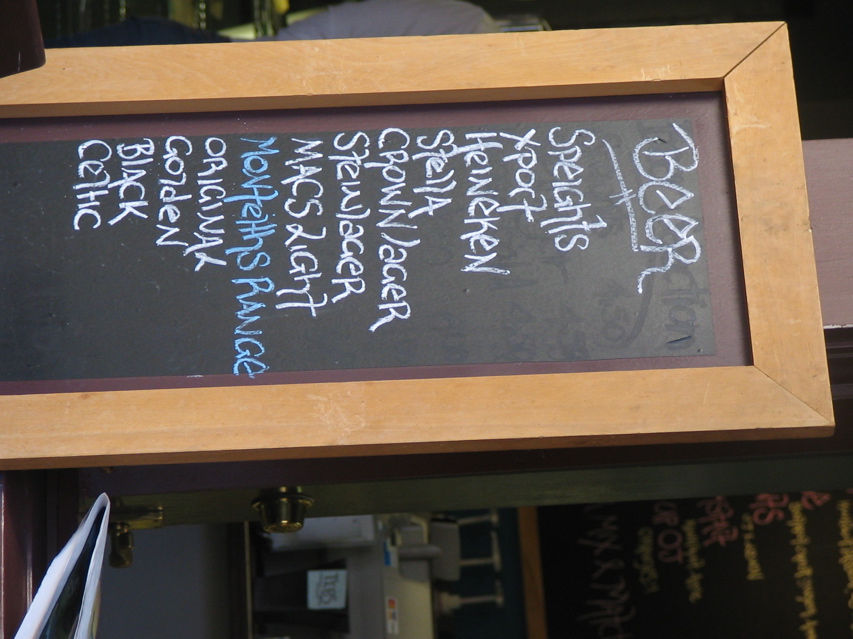 BEER
Speights
Xport
Heineken
Stella
CROWN lAGER
SteinlAGER
MACS LIGHT
MONTEIThS RANGE
ORIGINAL
GOlden
BlACK
CeltiC